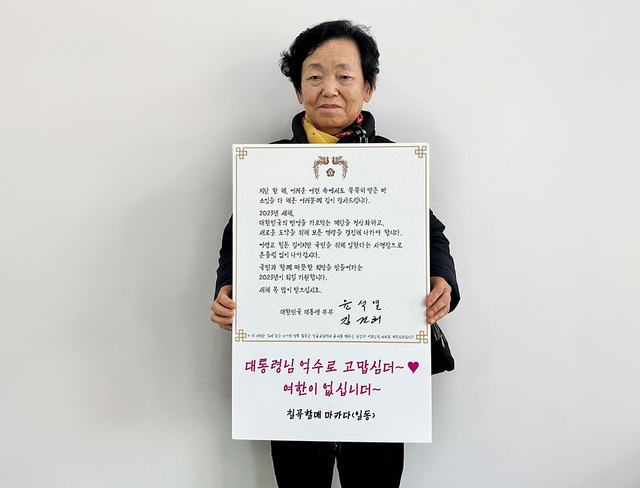 지난 한 해, 어려운 여건 속에서도 묵묵히 맡은 바
소임을 다 해온 여러분께 깊이 감사드립니다.
2023년 새해,
대한민국의 번영을 가로막는 폐단을 정상화하고,
새로운 도약을 위해 모든 역량을 결집해 나가야 합니다.
어렵고 힘든 길이지만 국민을 위해 일한다는 사명감으로
흔들림 없이 나아갑시다.
국민과 함께 따뜻한 희망을 만들어가는
2023년이 되길 기원합니다.
새해 복 많이 받으십시오.
대한민국 대통령 부부
윤석열
김건희
대통령님 억수로 고맙심더~♥
여한이 없십니더~
칠곡할매 마카다(일동)